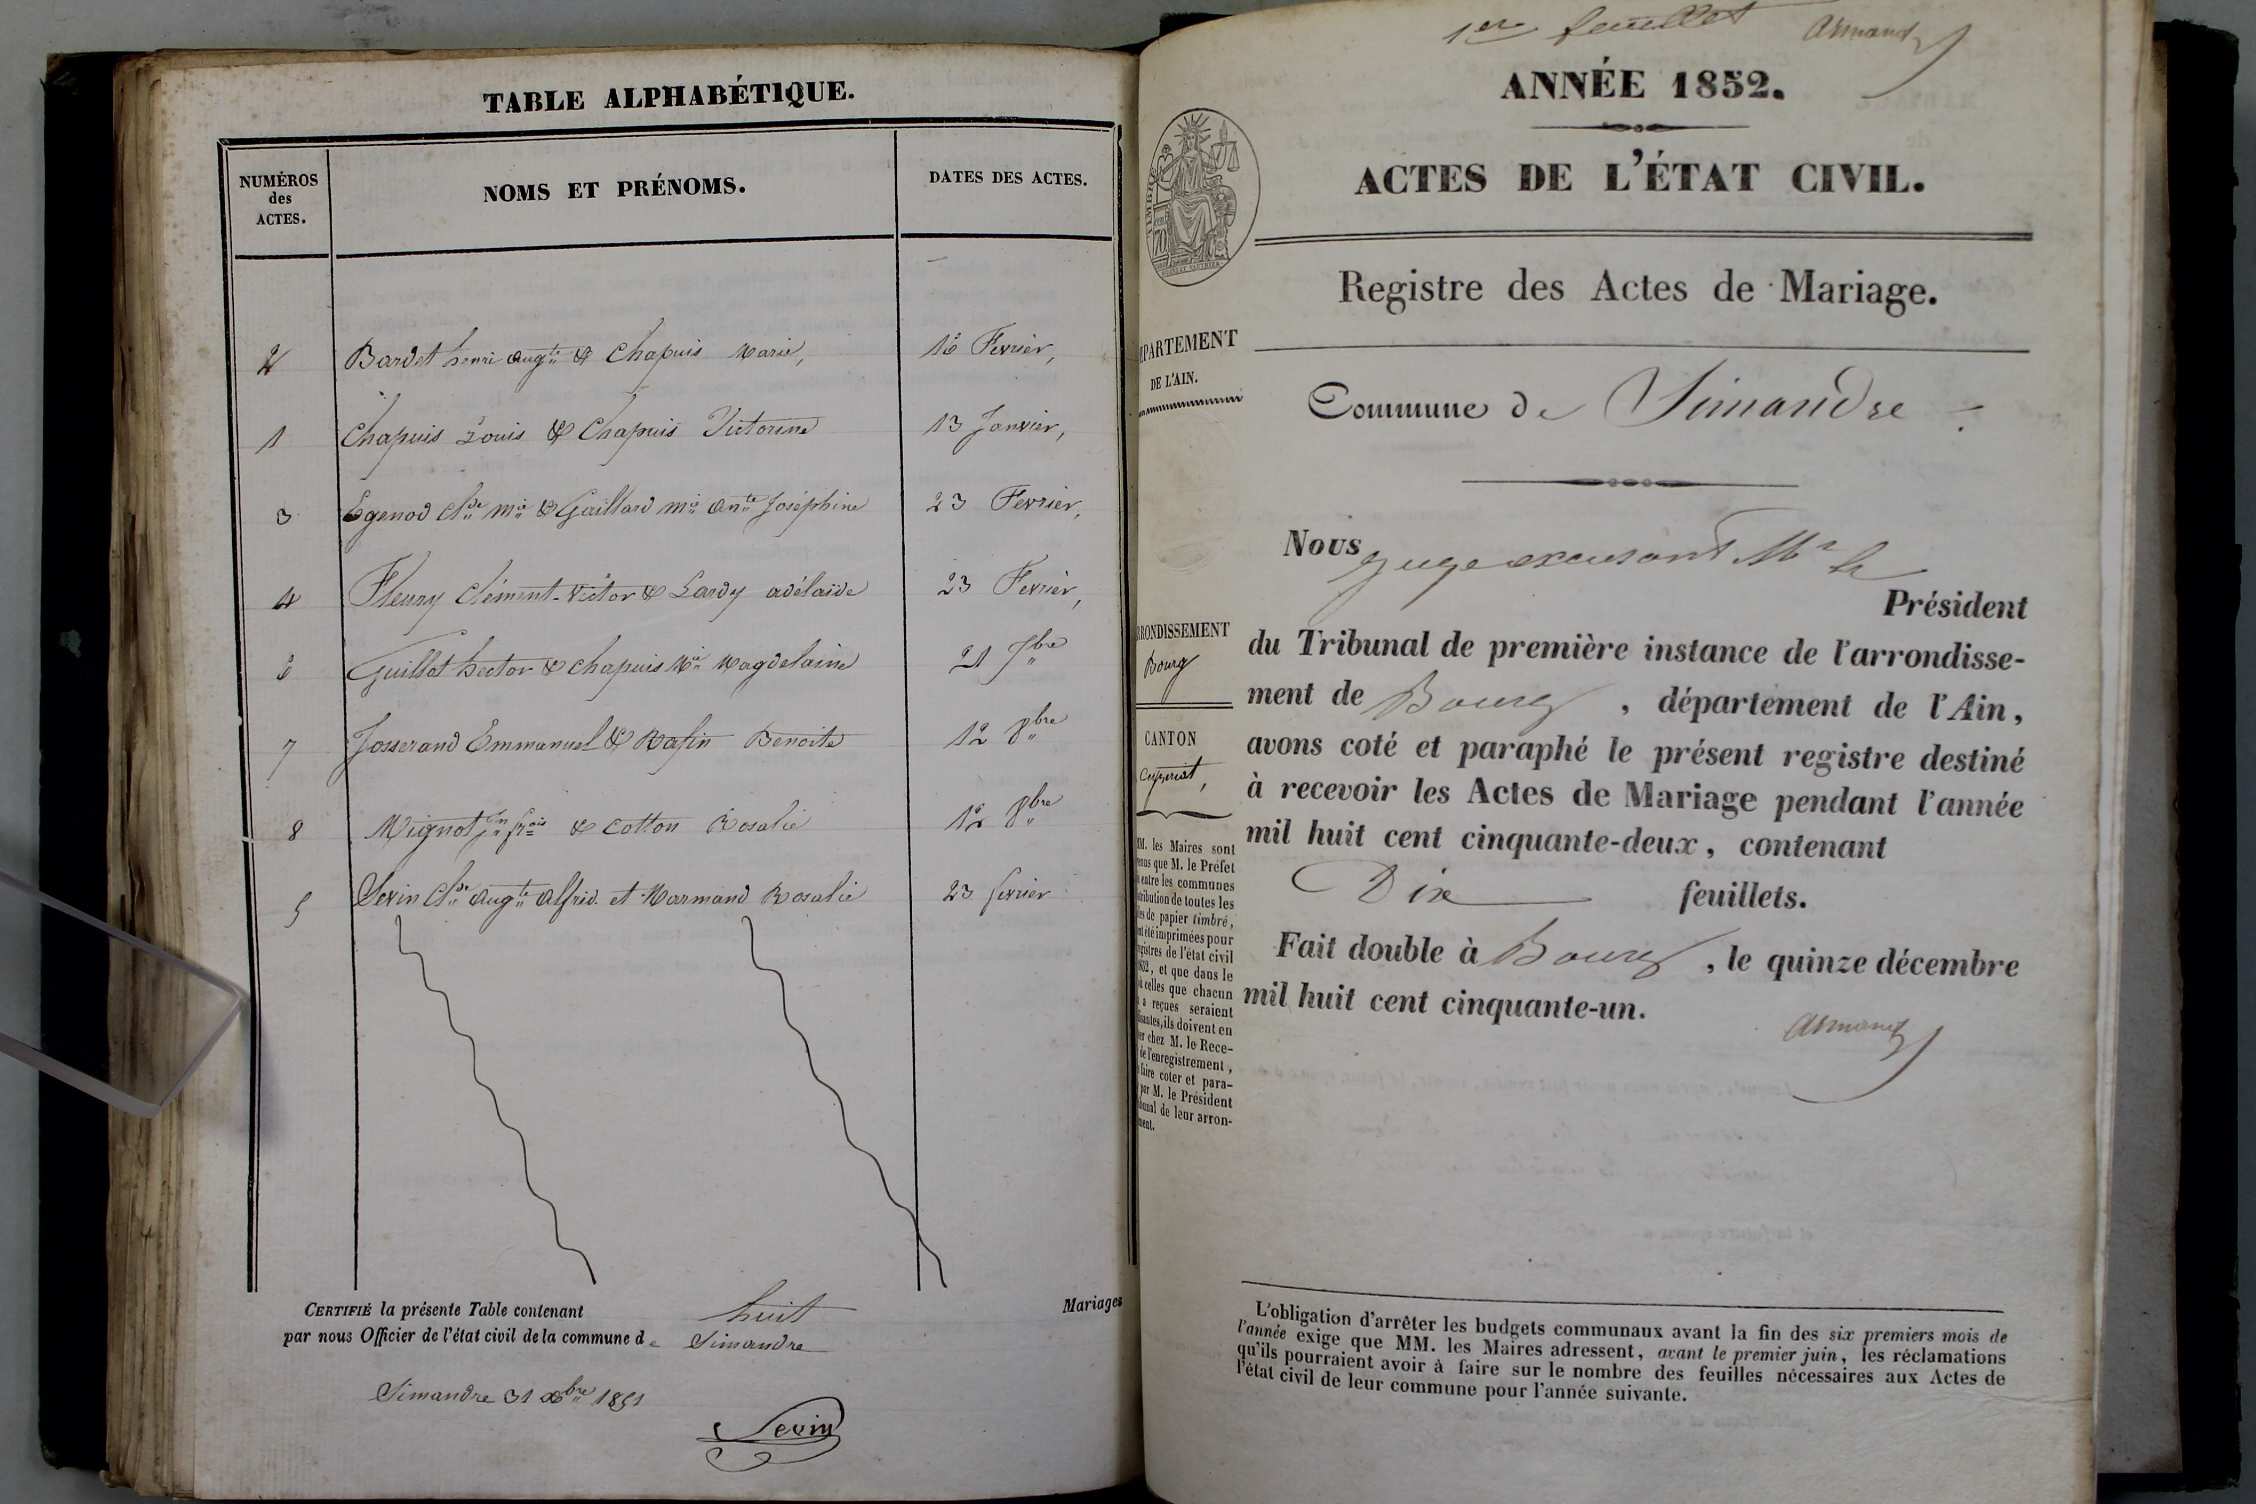 TABLE ALPHABÉTIQUE.
NUMÉROS
des
ACTES.
NOMS ET PRÉNOMS.
DATES DES ACTES.
2 Bardet henri augte & Chapuis Marie, 16 Fevrier,
1 Chapuis Louis & Chapuis Victorine 13 Janvier,
3 Egenod Chde mie & Gaillard mie ante Joséphine 23 Fevrier,
4 Fleury Clément-Victor & Lardy adélaïde 23 Fevrier,
6 Guillot hector & Chapuis Mie Magdelaine 21 7bre
7 Josserand Emmanuel & Rafin Benoite 12 8bre
8 Mignot Jn fçois & Cotton Rosalie 12 8bre
5 Sevin Chde augte alfrid. et Marmand Rosalie 23 fevrier
CERTIFIÉ la présente Table contenant huit Mariages
par nous Officier de l'état civil de la commune de Simandre
Simandre 31 Xbre 1851
Sevin
1er feuillet Armand
ANNÉE 1852.
ACTES DE L'ÉTAT CIVIL.
Registre des Actes de Mariage.
PARTEMENT
DE L'AIN.
Commune de Simandre
RONDISSEMENT
Bourg
CANTON
Ceyzeriat,
MM. les Maires sont
que M. le Préfet
entre les communes
de toutes les
de papier timbré,
été imprimées pour
de l'état civil
, et que dans le
celles que chacun
a reçues seraient
ils doivent en
chez M. le Rece-
de l'enregistrement,
faire coter et para-
par M. le Président
de leur arron-
Nous juge excusant Mr le
Président
du Tribunal de première instance de l'arrondisse-
ment de Bourg, département de l'Ain,
avons coté et paraphé le présent registre destiné
à recevoir les Actes de Mariage pendant l'année
mil huit cent cinquante-deux, contenant
Dix feuillets.
Fait double à Bourg, le quinze décembre
mil huit cent cinquante-un.
Armand
L'obligation d'arrêter les budgets communaux avant la fin des six premiers mois de
l'année exige que MM. les Maires adressent, avant le premier juin, les réclamations
qu'ils pourraient avoir à faire sur le nombre des feuilles nécessaires aux Actes de
l'état civil de leur commune pour l'année suivante.